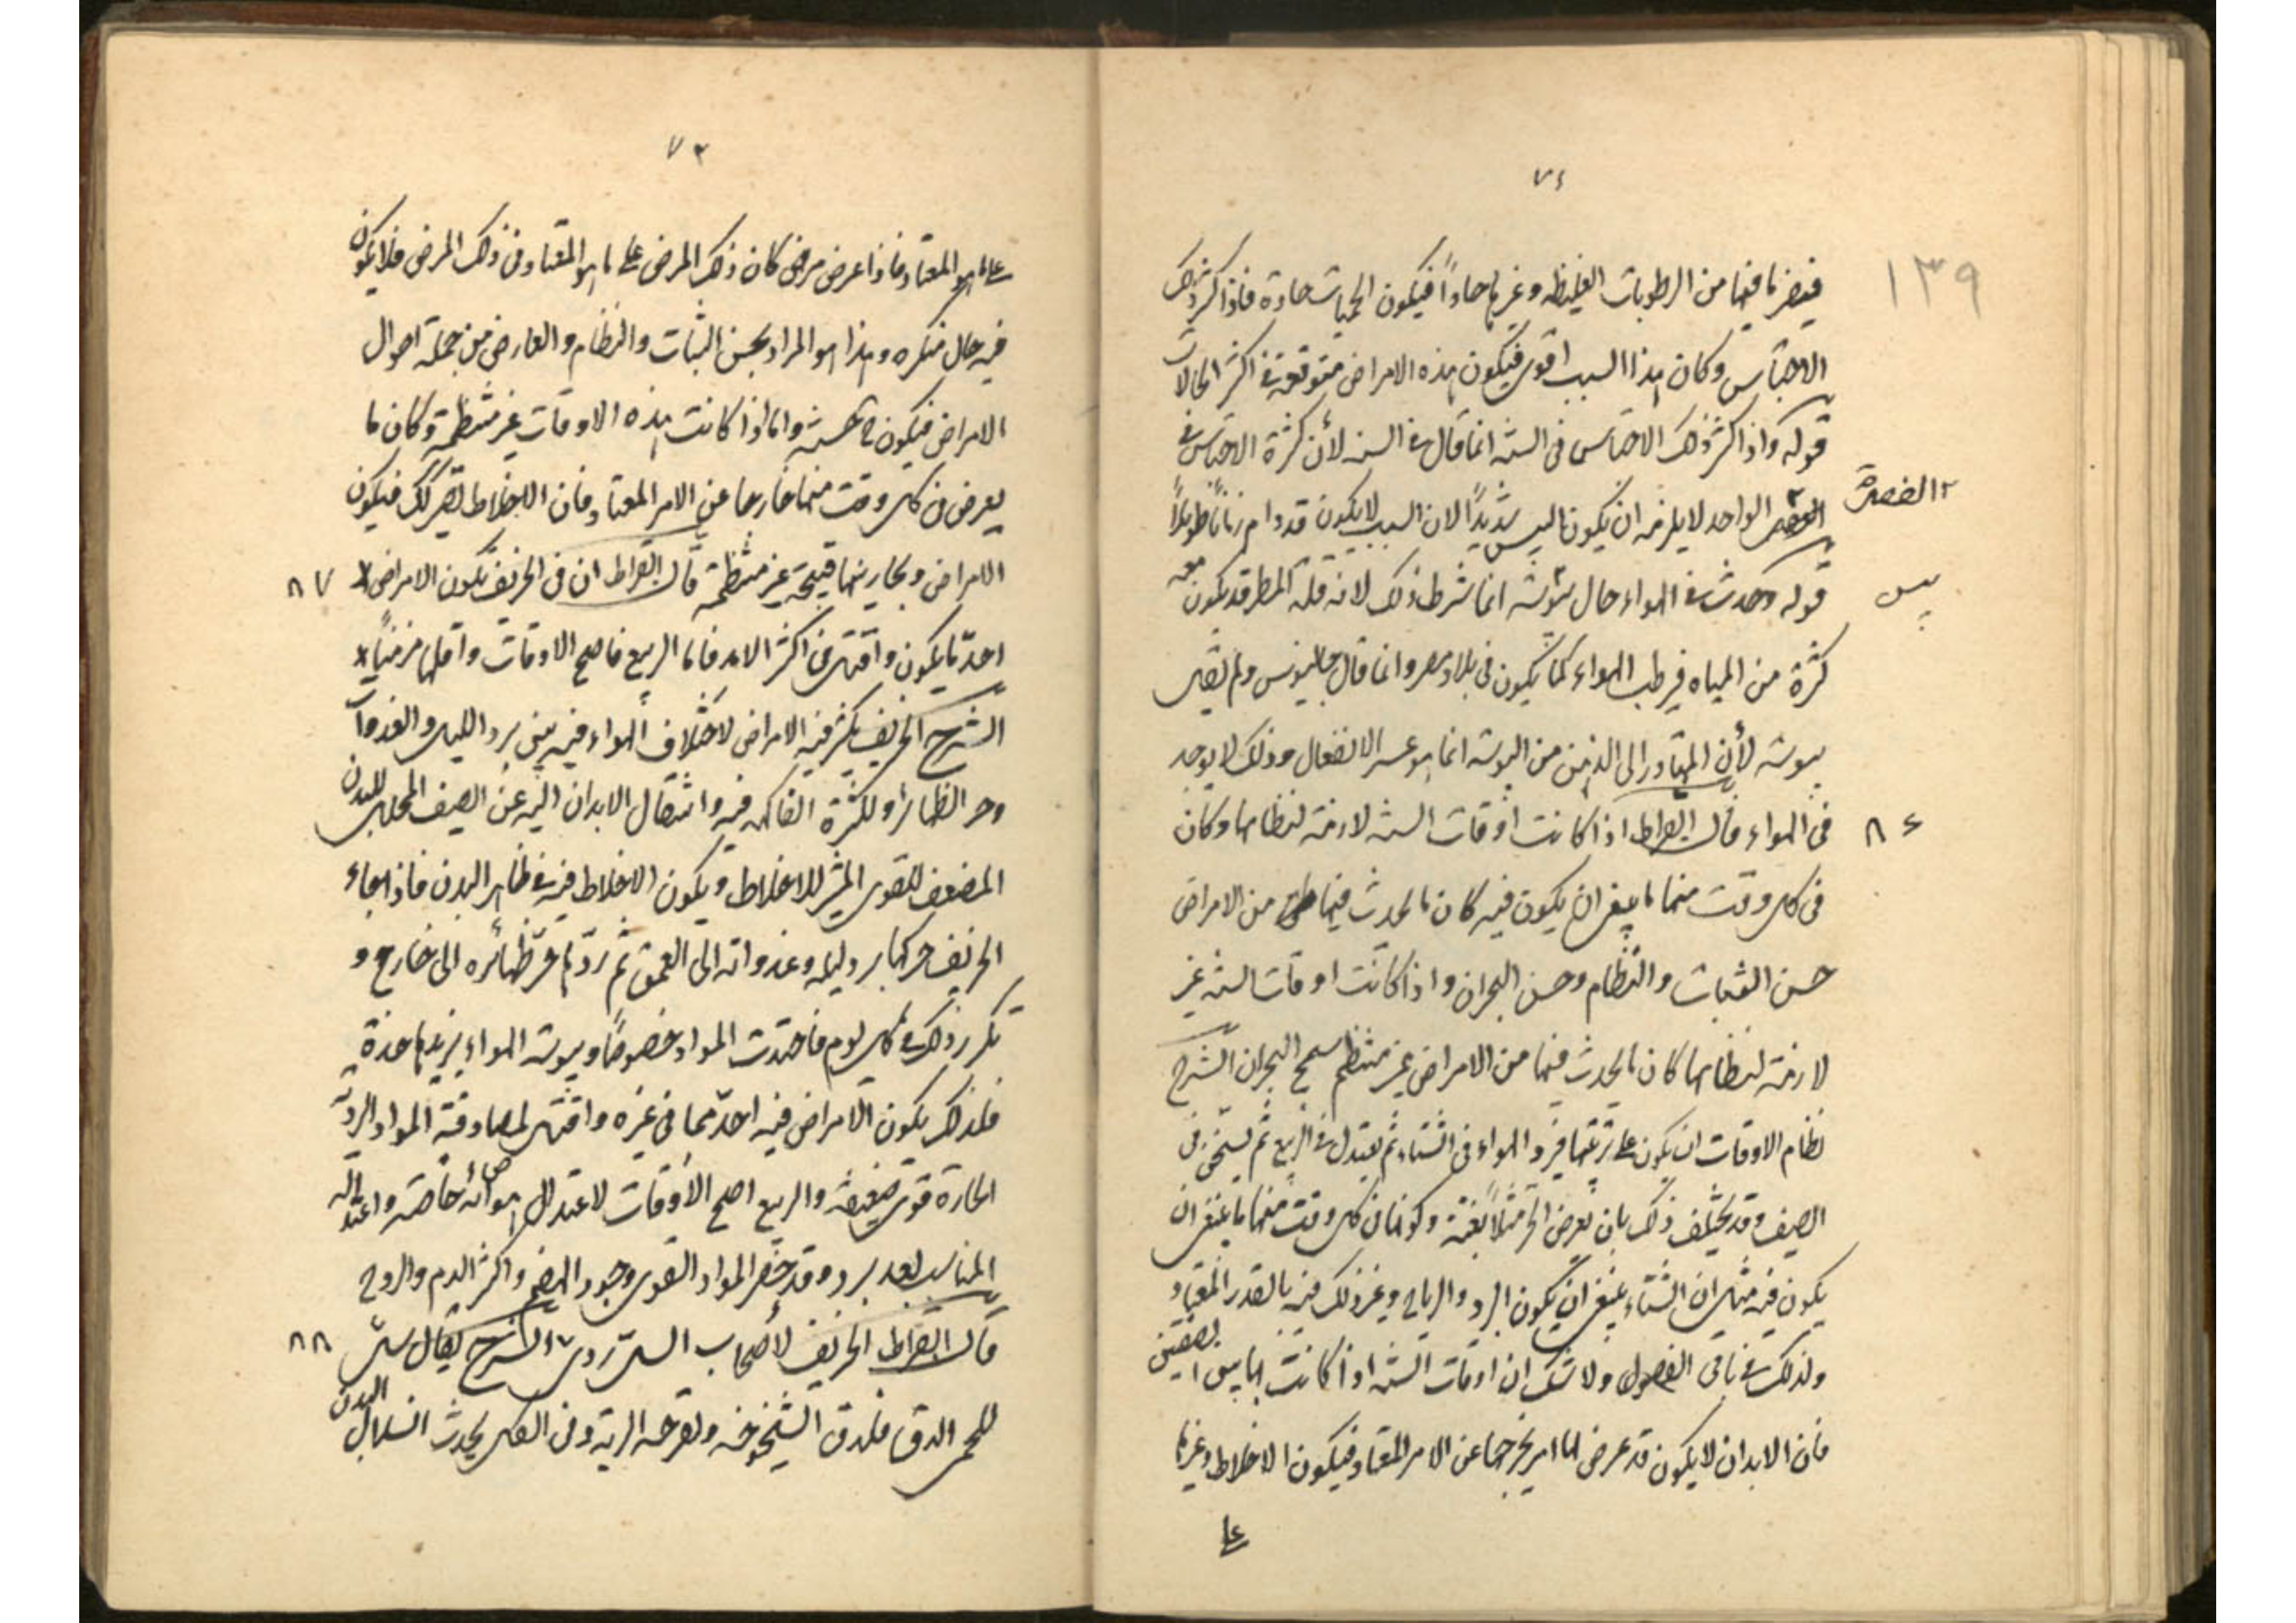 ٧٤
١٣٩
فيصير ما فيها من الرطوبات الغليظه وغيرها حاداً فيكون الحميات حادة فاذا كثر ذلك
الاحتباس وكان هذا السبب اقوى فيكون هذه الامراض متوقعة فى اكثر الحالات
قوله واذا كثر ذلك الاحتباس فى السنه انما قال فى السنه لأن كثرة الاحتباس فى
الواحد لا يلزمه ان يكون اليبس شديداً لان السبب لا يكون قد دام زماناً طويلاً
قوله وحدث فى الهواء حال يبوسة انما شرط ذلك لانه قلة المطر قد يكون معه
يبس
كثرة من المياه فيرطب الهواء كما يكون فى بلاد مصر وانما قال حال يبوسة ولم يقل
يبوسة لأن المتبادر الى الذهن من اليبوسة انما هو عسر الانفعال وذلك لا يوجد
فى الهواء قال ابقراط اذا كانت اوقات السنه لازمة لنظامها وكان
٨٤
فى كل وقت منها ما ينبغى ان يكون فيه كان ما يحدث فيها من الامراض
حسن الثبات والنظام وحسن البحران واذا كانت اوقات السنه غير
لازمة لنظامها كان ما يحدث فيها من الامراض غير منتظم سمج البحران الشرح
نظام الاوقات ان يكون على ترتيبها فيبرد الهواء فى الشتاء ثم يعتدل فى الربيع ثم يسخن فى
الصيف وقد يختلف ذلك بان يعرض الحر مثلاً بغتة وكونها فى كل وقت منها ما ينبغى ان
يكون فيه مثل ان الشتاء ينبغى ان يكون البرد والرياح وغير ذلك فيه بالقدر المعتاد
وكذلك فى باقى الفصول ولا شك ان اوقات السنه اذا كانت
فان الابدان لا يكون قد عرض لها امر يخرجها عن الامر المعتاد فيكون الاخلاط وغيرها
على
٧٣
على ما هو المعتاد فاذا عرض مرض كان ذلك المرض على ما هو المعتاد فى ذلك المرض فلا يكون
فيه حال منكره وهذا هو المراد بحسن الثبات والنظام والعارض من جملة احوال
الامراض فيكون واما اذا كانت هذه الاوقات غير منتظمة وكان ما
يعرض فى كل وقت منها خارجا عن الامر المعتاد فان الاخلاط تصير كذلك فيكون
الامراض وبحارينها قبيحة غير منتظمة قال ابقراط ان فى الخريف تكون الامراض
٨٧
احدّ ما يكون واقتل فى اكثر الامر فاما الربيع فاصح الاوقات واقلها مزمناً
الشرح الخريف يكثر فيه الامراض لاختلاف الهواء فيه بين برد الليل والغدوات
وحر الظهائر ولكثرة الفاكهة فيه وانتقال الابدان اليه عن الصيف المحلل للبدن
المضعف للقوى المثير للاخلاط ويكون الاخلاط فيه فى ظاهر البدن فاذا جاء
الخريف حركها برد ليله وغدواته الى العمق ثم ردّها حر ظهائره الى خارج و
تكرر ذلك فى كل يوم فاحتدت المواد خصوصاً ويبوسة الهواء يزيدها حدة
فلذلك يكون الامراض فيه احدّ مما فى غيره واقتل لمصادفة المواد الردية
الحارة قوى ضعيفة والربيع اصح الاوقات لاعتدال هوائه خاصة واعتداله
المناسب بعد برد وقد خضر المواد القوى وجود الهضم واكثر الدم والروح
قال ابقراط الخريف لأصحاب السل ردى الشرح يقال سل
٨٨
للحمى الدق فلدق الشيخوخة ولقرحه الرية وفى الكل يحدث انسلال البدن